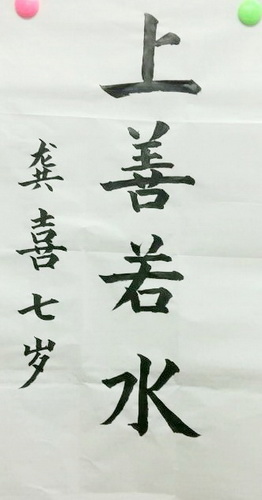 上善若水
龚喜七岁